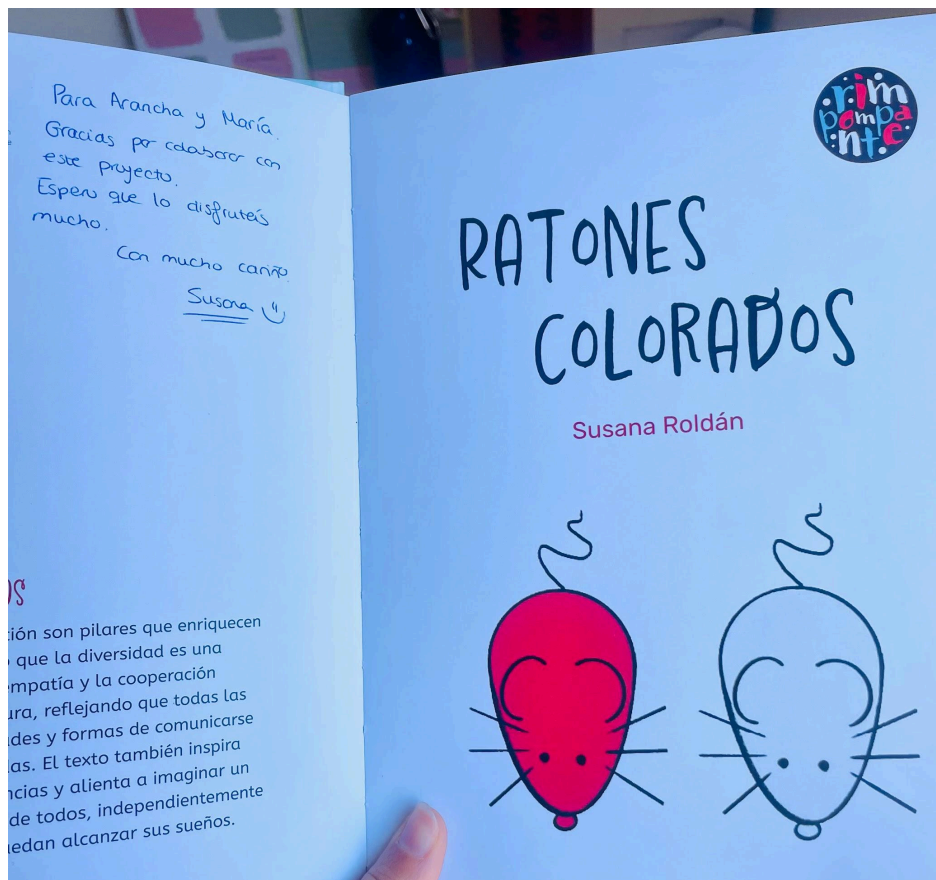 Para Arancha y María.
Gracias por colaborar con
este proyecto.
Espero que lo disfrutéis
mucho.
Con mucho cariño.
Susana
os
ión son pilares que enriquecen
que la diversidad es una
mpatía y la cooperación
ura, reflejando que todas las
des y formas de comunicarse
as. El texto también inspira
ncias y alienta a imaginar un
de todos, independientemente
edan alcanzar sus sueños.
rim
pompa
nte
RATONES
COLORADOS
Susana Roldán